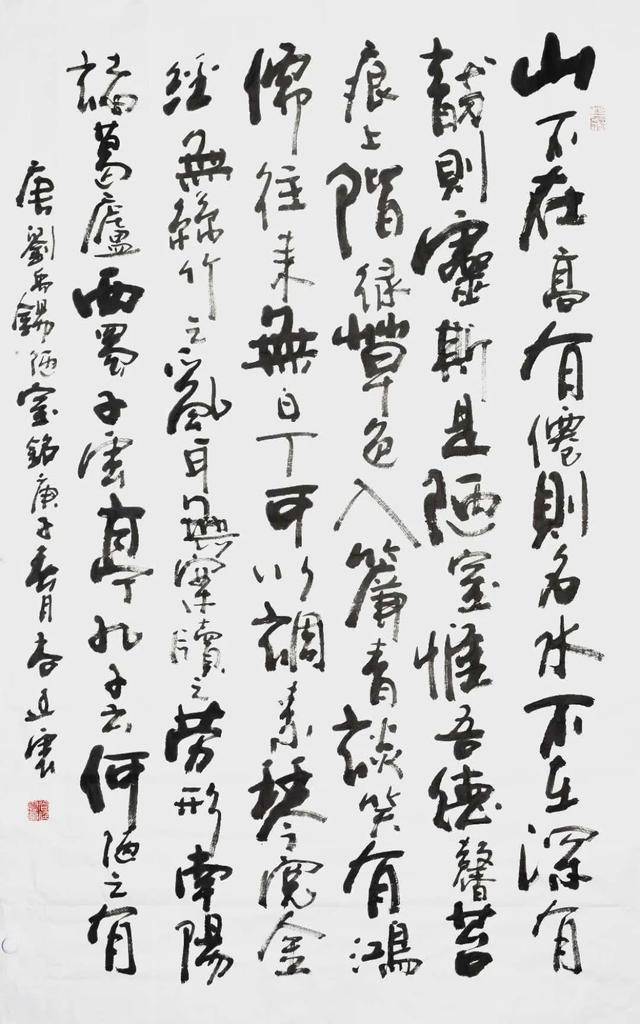 山不在高有僊則名水不在深有
龍則靈斯是陋室惟吾德馨苔
痕上階緑草色入簾青談笑有鴻
儒往来無白丁可以調素琴之閱金
經無絲竹之亂耳無案牘之勞形南陽
諸葛廬西蜀子雲亭孔子云何陋之有
唐劉禹錫陋室銘庚子春月李